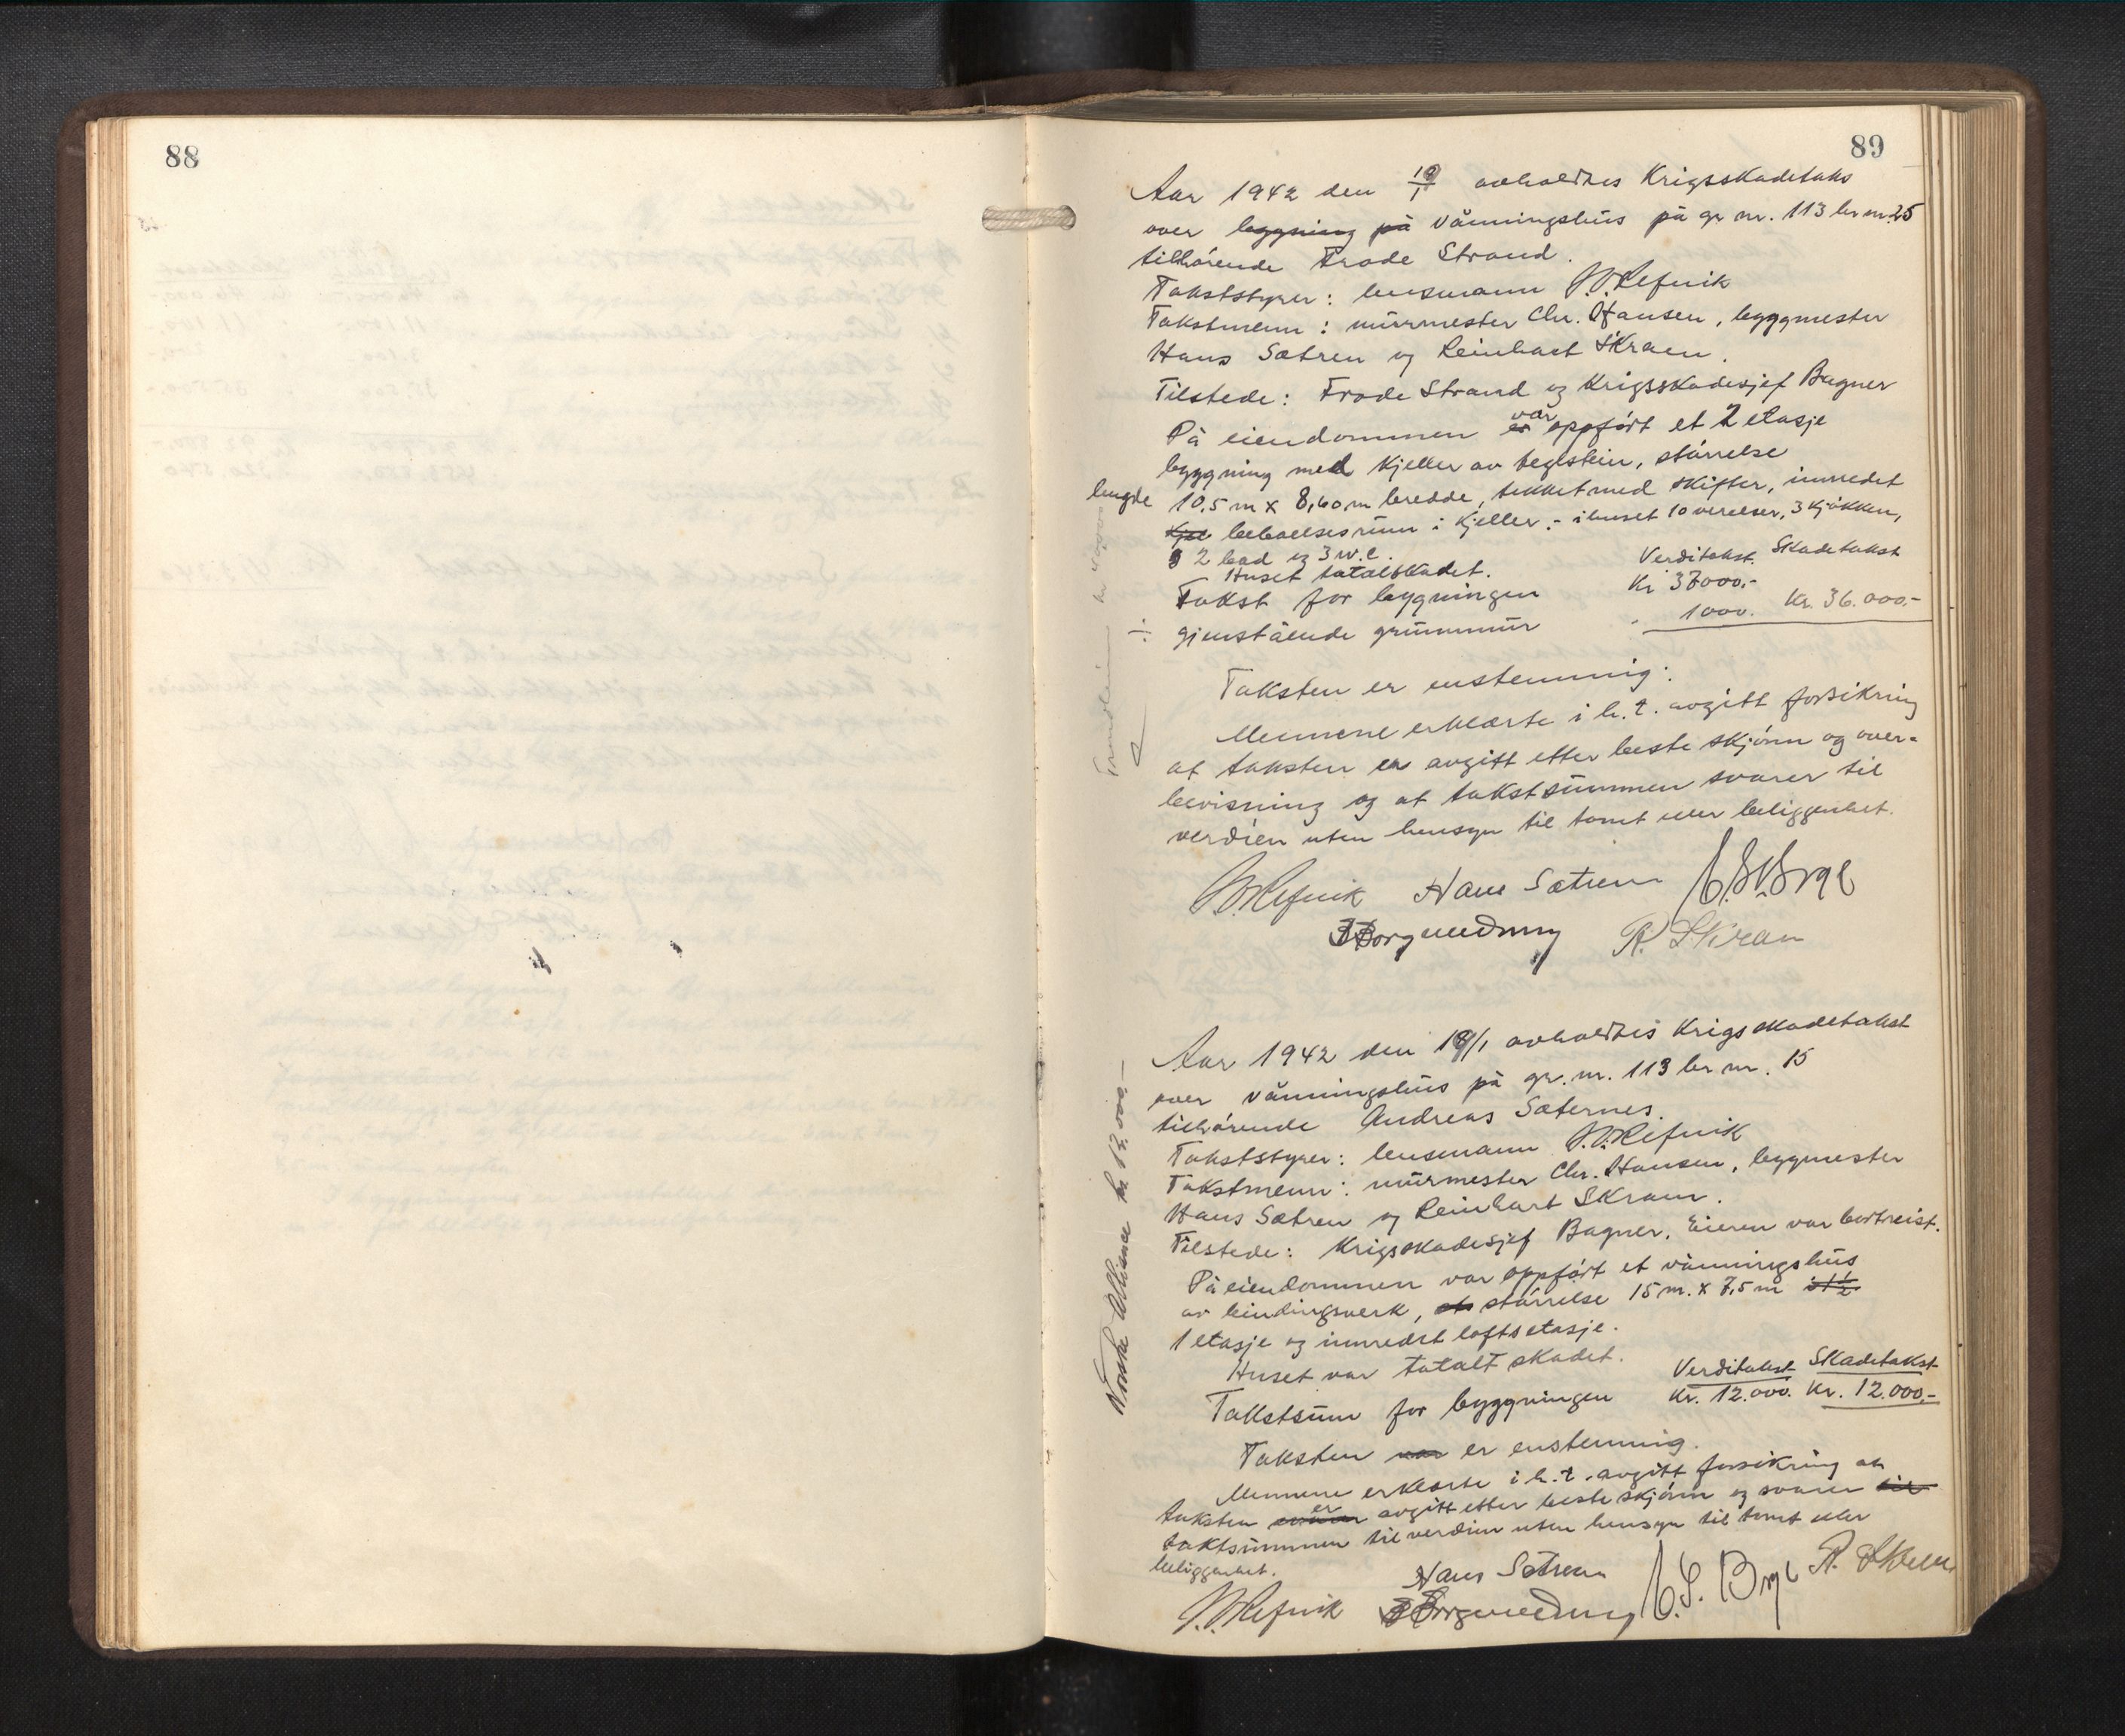 88
89
Aar 1942 den 19/1 avholdtes Krigsskadetaks
over bygning på våningshus på gr nr. 113 br nr. 25
tilhørende Frode Strand.
Takststyrer: lensmann Refvik
Takstmenn: murmester Chr. Hansen, byggmester
Hans Sætren og Reinhart Skram.
Tilstede: Frode Strand og Krigsskadesjef Bagner
På eiendommen er var oppført et 2 etasje
bygning med kjeller av teglstein, størrelse
lengde 10,5 m x 8,60 m bredde, tekket med skifter, innredet
beboelsesrum i kjeller. - i huset 10 værelser, 3 kjøkken,
2 bad og 3 w.c.
Huset totalskadet.
Verditakst. Skadetakst
Takst for bygningen Kr 37000.-
÷ gjenstående grunnmur " 1000. Kr. 36.000.-
Taksten er enstemmig.
Mennene erklærte i h.t. avgitt forsikring
at taksten er avgitt efter beste skjønn og over-
bevisning og at takstsummen svarer til
verdien uten hensyn til tomt eller beliggenhet.
Refvik Hans Sætren
R. Skram
Trondheim kr
Aar 1942 den 19/1 avholdtes Krigsskadetakst
over våningshus på gr. nr. 113 br nr. 15
tilhørende Andreas Sæternes.
Takststyrer: lensmann Refvik
Takstmenn: murmester Chr. Hansen, bygmester
Hans Sætren og Reinhart Skram.
Tilstede: Krigsskadesjef Bagner. Eieren var bortreist.
På eiendommen var oppført et våningshus
av bindingsverk, størrelse 15 m. x 7,5 m i 1 1/2
1 etasje og innredet loftsetasje.
Huset var totalt skadet.
Verditakst Skadetakst
Takstsum for bygningen Kr. 12.000. Kr. 12.000.-
Taksten var er enstemmig.
Mennene erklærte i h.t. avgitt forsikring at
taksten er avgitt efter beste skjønn og svarer til
taktsummen til verdien uten hensyn til tomt eller
beliggenhet.
Hans Sætren R. Skram
Refvik
Norske Alliance kr 12.000.-